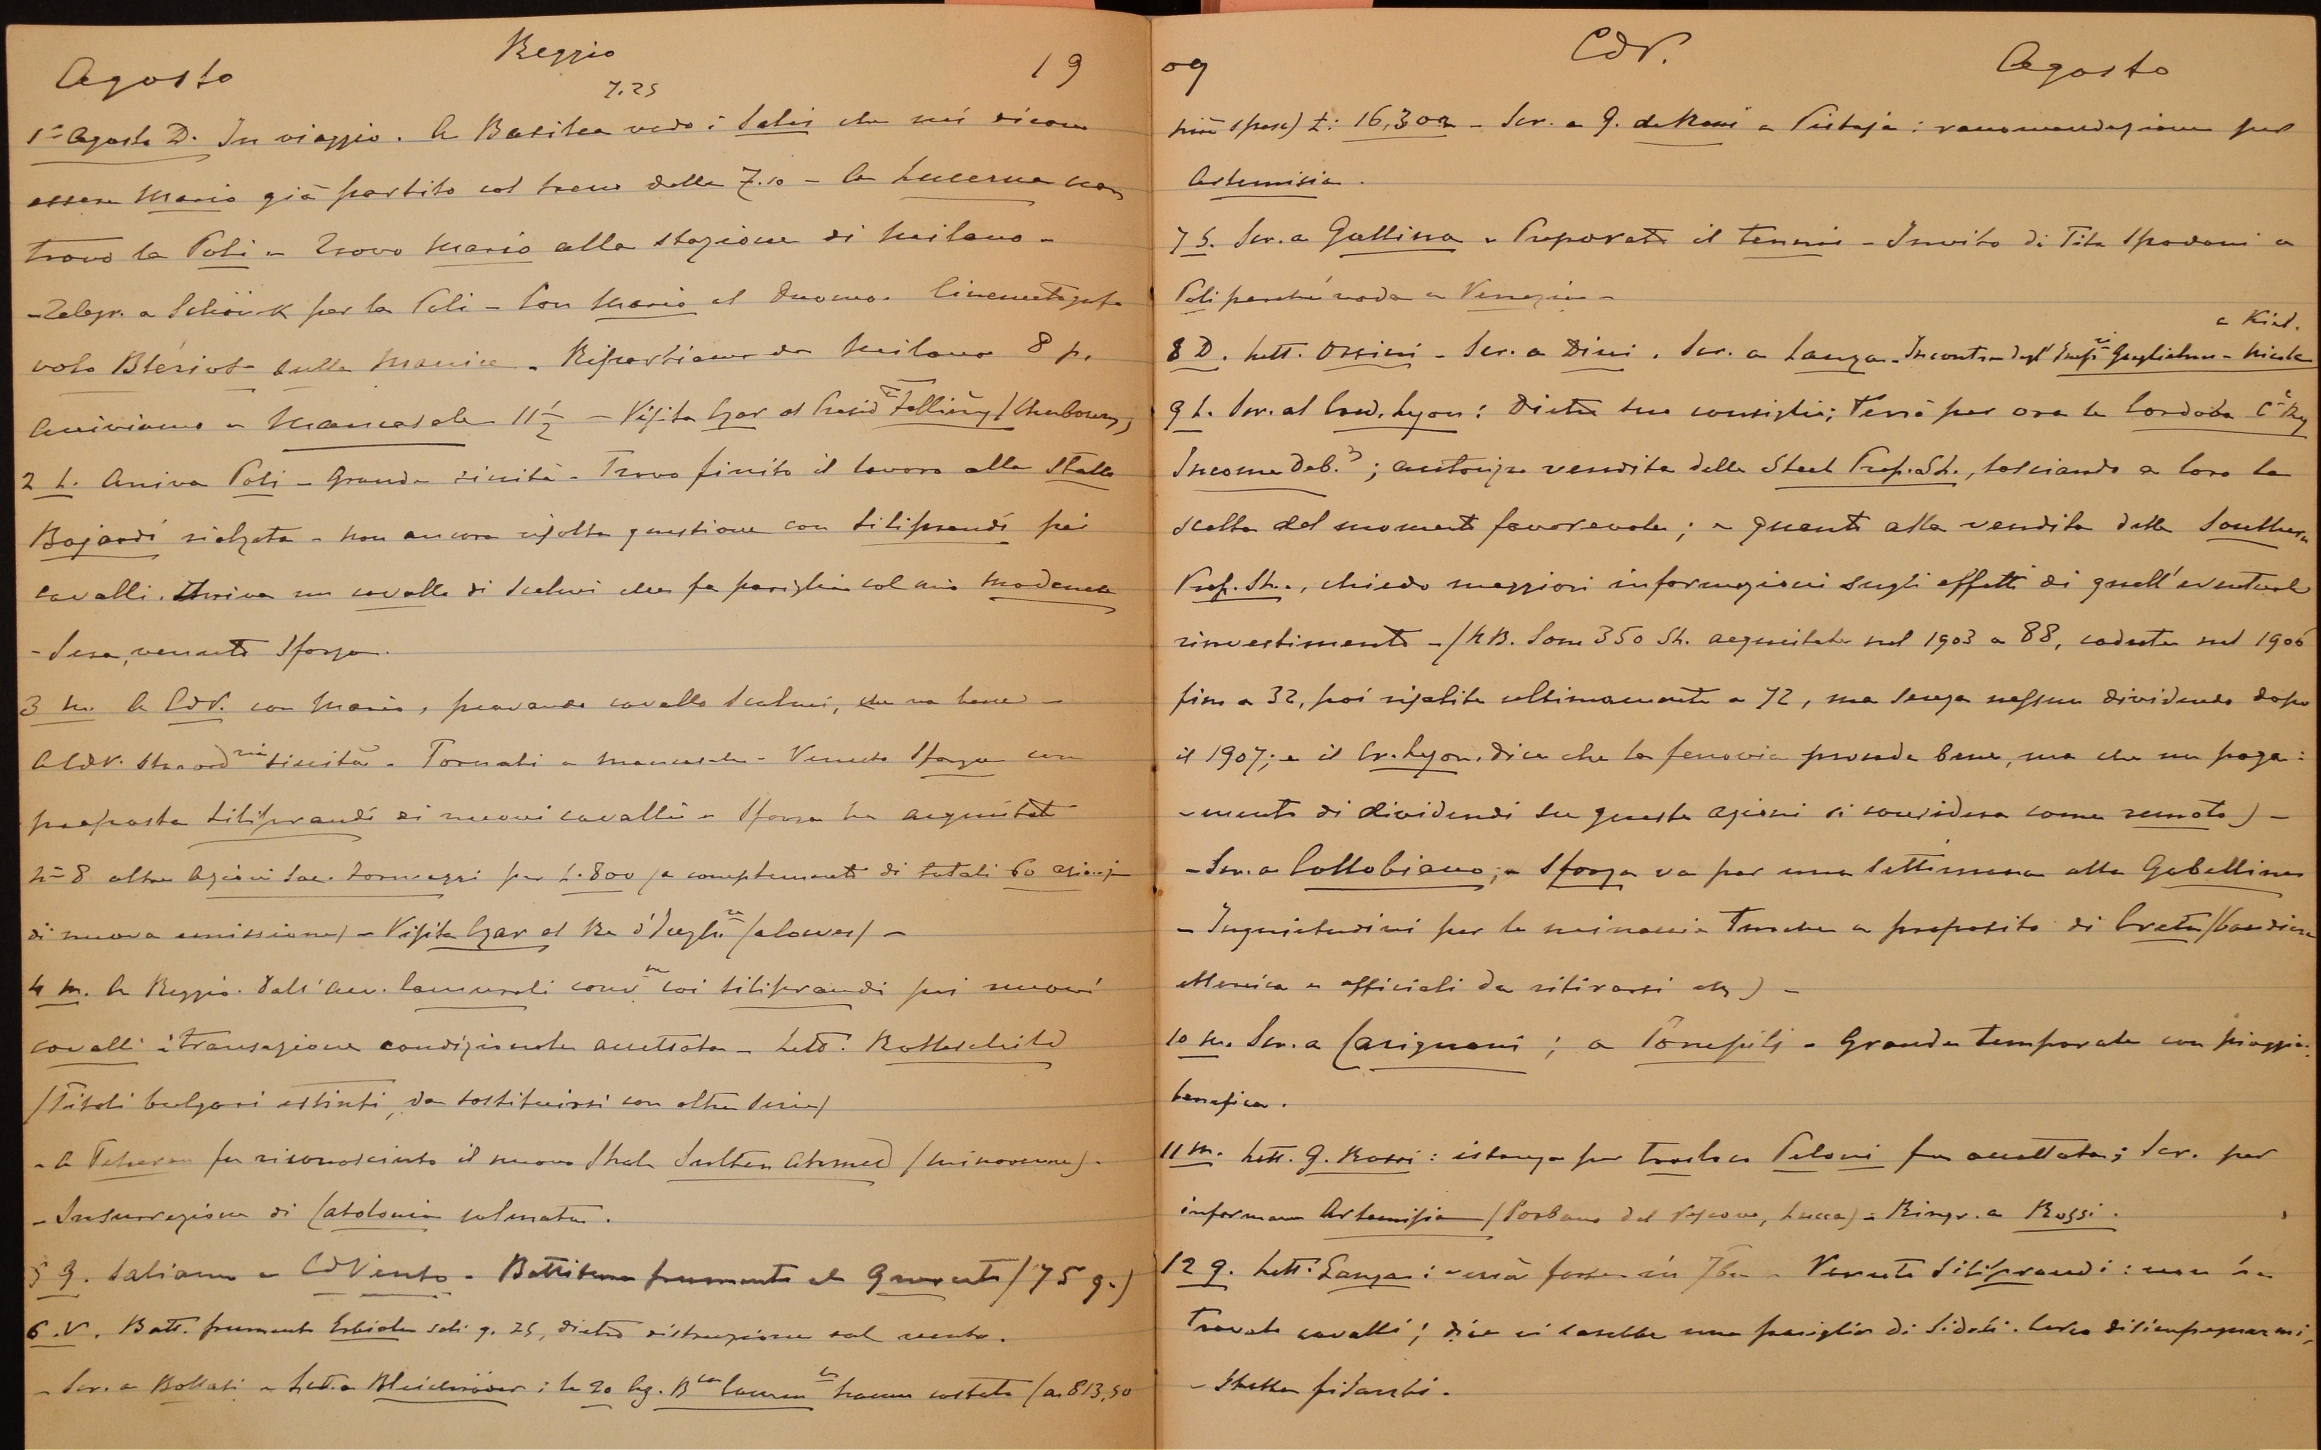 Agosto Reggio 19
7.25
1º Agosto D. In viaggio. A Basilea vedo i Salis che mi dicono
essere Mario già partito col treno delle 7.10 - A Lucerna non
trovo la Poli - Trovo Mario alla stazione di Milano -
- Telegr. a per la Poli - Con Mario al Duomo. Cinematografo
volo Blériot sulla Manica. Ripartiamo da Milano 8 p.
Arriviamo a Mancasale 11½ - Visita Czar al Presid Fallières (Cherbourg)
2 L. Arriva Poli - Grande siccità - Trovo finito il lavoro alla Stalla
Bojardi rialzata - non ancora risolta questione con Liliprandi pei
cavalli. Arriva un cavallo di Scelsi che fa pariglia col mio Modenese
- Sera, venuto Sforza.
3 M. A CdV. con Mario, provando cavallo, che va bene -
A CdV. straordria siccità - Tornati a Mancasale - Venuto Sforza con
proposta Liliprandi di nuovi cavalli - Sforza ha acquistato
nº 8 altre Azioni Soc. per L. 800 (a complemento di totali 60 azioni
di nuova emissione) - Visita Czar al Re d'Inghra (a Cowes) -
4 M. A Reggio. Dall'avv. convne coi Liliprandi pei nuovi
cavalli: transazione condizionata accettata - Lett. Rothschild
(Titoli bulgari estinti, da sostituirsi con altra serie)
- A Teheran fu riconosciuto il nuovo Shah Sultan Ahmed (minorenne).
- Insurrezione di Catalonia calmata.
5 G. Saliamo a CdVento - Battitura frumento al (75 q.)
6. V. Batt. frumento soli q. 25, dietro distruzione dal vento.
- Scr. a Bollati - Lett. a Bleichröder: le 20 Az. Bca hanno costato (a 813,50
09 CdV. Agosto
più spese) £: 16,302 - Scr. a G. de Rossi a Pistoja: raccomandazione per
Artemisia.
7 S. Scr. a Gallina - Preparato il tennis - Invito di Tita Spadoni a
Poli perché vada a Venezia -
a Kiel.
8 D. Lett. Orsini - Scr. a Dini. Scr. a Lanza - Incontro degl'Impri Guglielmo - Nicola
9 L. Scr. al Cred. Lyon: Dietro suo consiglio: Terrò per ora le Cordoba Cl Ry
Income Deb.; autorizzo vendita delle Steel Pref. Sh., lasciando a loro la
scelta del momento favorevole; e quanto alla vendita delle Southern
Pref. Sh., chiedo maggiori informazioni sugli effetti di quell'eventuale
rinvestimento - (NB. Sono 350 Sh. acquistate nel 1903 a 88, cadute nel 1906
fino a 32, poi risalite ultimamente a 72, ma senza nessun dividendo dopo
il 1907; e il Cr. Lyon. dice che la ferrovia procede bene, ma che un paga:
- mento di dividendi su queste azioni si considera come remoto) -
- Scr. a Collobiano; - Sforza va per una settimana alla Gabellina
- Inquietudini per le minaccie Turche a proposito di Creta (bandiera
ellenica e officiali da ritirarsi) -
10 M. Scr. a Carignani; a - Grande temporale con pioggia
benefica.
11 M. Lett. G. Rossi: istanza per trasloco Peloni fu accettata; Scr. per
informare Artemisia (del Vescovo, Lucca) - Ringr. a Rossi.
12 G. Lett. Lanza: verrà forse in 7bre - Venuto Liliprandi: non ha
trovato cavalli; dice ci sarebbe una pariglia di Sidoli. Cerco disimpegnarmi,